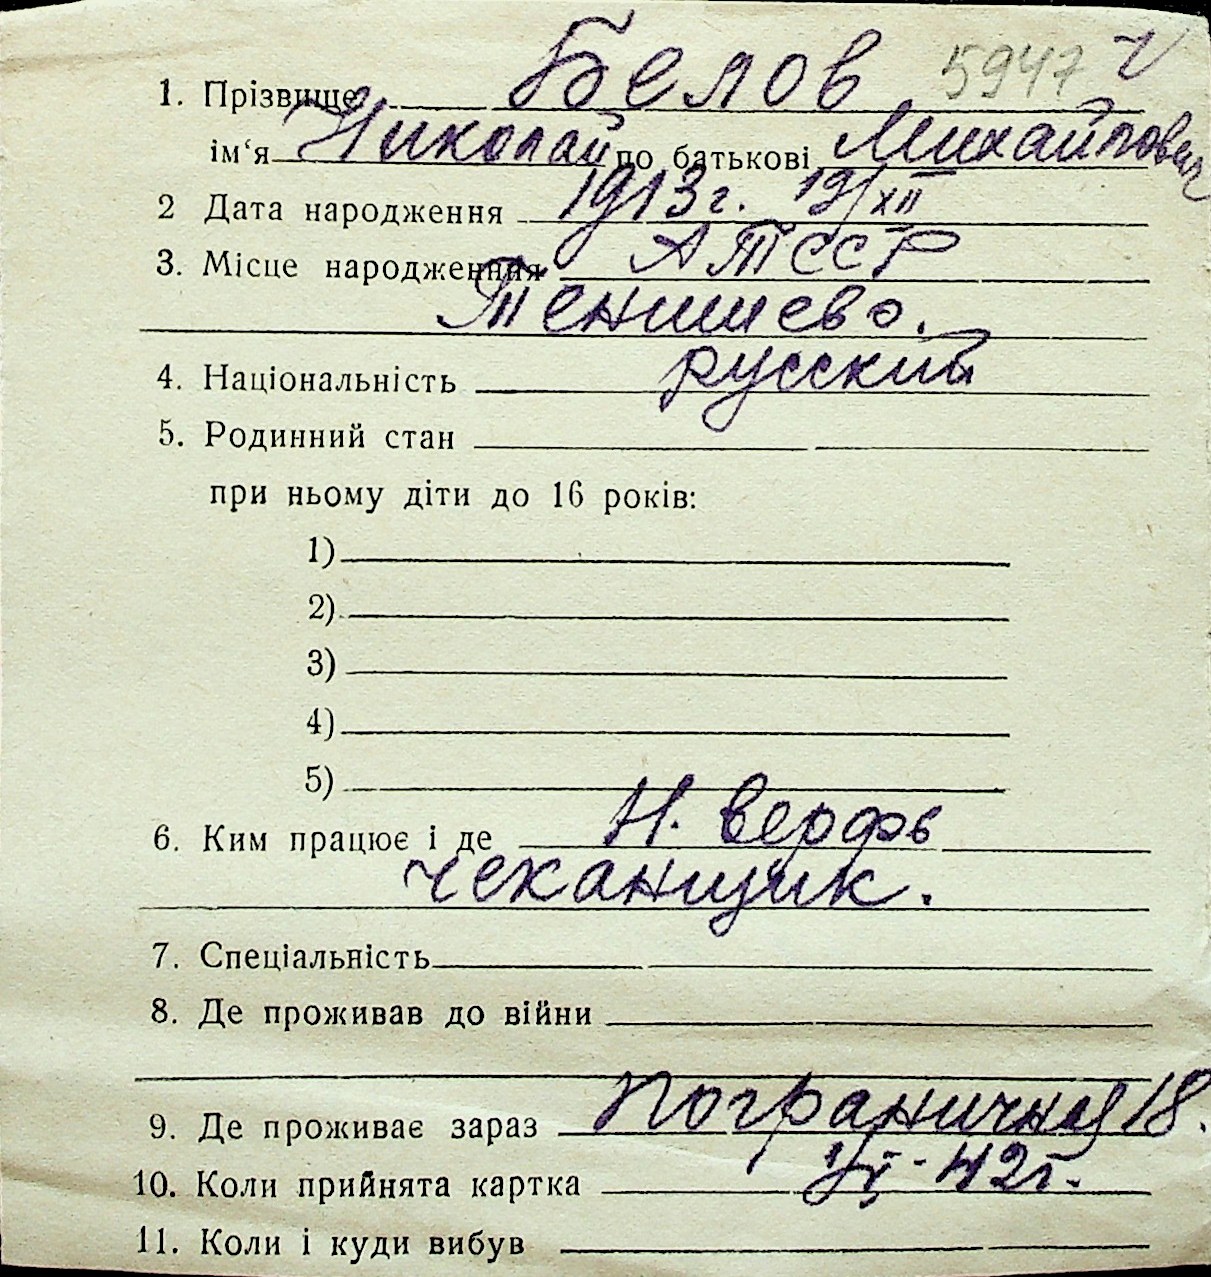 1. Прізвище Белов 5947 V
ім‘я Николай по батькові Михайлович
2 Дата народження 1913 г. 19/XII
3. Місце народження АТССР
Тенишево.
4. Національність русский
5. Родинний стан
при ньому діти до 16 років:
1)
2)
3)
4)
5)
6. Ким працює і де Н. верфь
чеканщик.
7. Спеціальність
8. Де проживав до війни
9. Де проживає зараз Пограничная 18.
10. Коли прийнята картка 42 г.
11. Коли і куди вибув